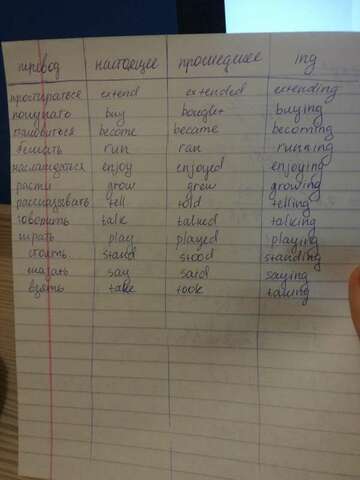 перевод настоящее прошедшее ing
простираться extend extended extending
покупать buy bought buying
становиться become became becoming
бежать run ran running
наслаждаться enjoy enjoyed enjoying
расти grow grew growing
рассказывать tell told telling
говорить talk talked talking
играть play played playing
стоять stand stood standing
сказать say said saying
взять take took taking